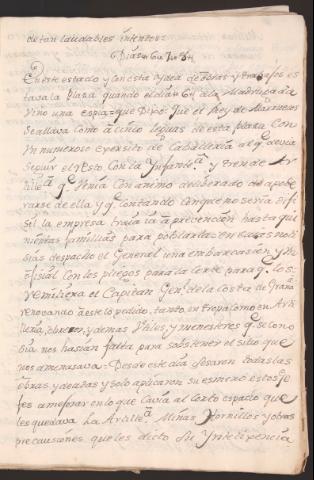 de tan laudables intentos =
Dia 6 de Jun.
En este estado y con esta ydea de obras y trabajos es
tava la plaza quando el dia 6 a la Madrugada
vino una espia que Dijo: que el Rey de Marruecos
se allava como a cinco leguas de esta plaza con
Un numeroso exersito de Cavalleria al q.e devia
seguir el resto Con la Ynfant.a y tren de Ar
till.a q.e Venia Con animo deliberado de apode
rarse de ella y q.e contando conque no seria difi
sil la empresa traia la prevencion hasta qui
nientas familias para poblarla = en estas noti
sias despacho el General una embarcasion y Un
ofisial Con los pliegos para la Corte para q.e los
remitiera el Capitan Gen.l de la Costa de Gran.a
renovando a este lo pedido, tanto en tropa como en Arti
lleria, y demas Utiles y menesteres q.e se cono
sia nos hasian falta para sobstener el sitio que
nos amenasava = Desde este dia sesaron todas las
obras y deatas y solo aplicaron su esmero estos Je
fes a mejorar en lo que Cavia al Corto espacio que
les quedava la Artill.a Minas, Hornillos y obras
precausiones que les dicto Su Yntelixencia